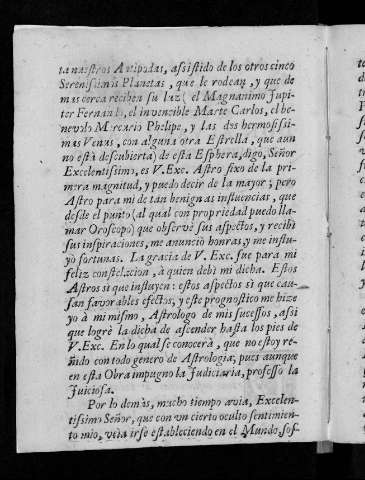 ta nuestros Antipodas, assistido de los otros cinco
Serenissimos Planetas, que le rodean, y que de
mas cerca reciben su luz (el Magnanimo Jupi-
ter Fernando, el invencible Marte Carlos, el be-
nevolo Mercurio Phelipe, y las dos hermosissi-
mas Venus, con alguna otra Estrella, que aun
no està descubierta) de esta Esphera, digo, Señor
Excelentissimo, es V. Exc. Astro fixo de la pri-
mera magnitud, y puedo decir de la mayor; pero
Astro para mi de tan benignas influencias, que
desde el punto (al qual con propriedad puedo lla-
mar Oroscopo) que observè sus aspectos, y recibì
sus inspiraciones, me anunciò honras, y me influ-
yò fortunas. La gracia de V. Exc. fue para mi
feliz constelacion, à quien debì mi dicha. Estos
Astros si que influyen: estos aspectos si que cau-
san favorables efectos, y este prognostico me hize
yo à mi mismo, Astrologo de mis sucessos, assi
que logrè la dicha de ascender hasta los pies de
V. Exc. En lo qual se conocerà, que no estoy re-
ñido con todo genero de Astrologia, pues aunque
en esta Obra impugno la Judiciaria, professo la
Juiciosa.
Por lo demàs, mucho tiempo avia, Excelen-
tissimo Señor, que con un cierto oculto sentimien-
to mio, veìa irse estableciendo en el Mundo, sos-